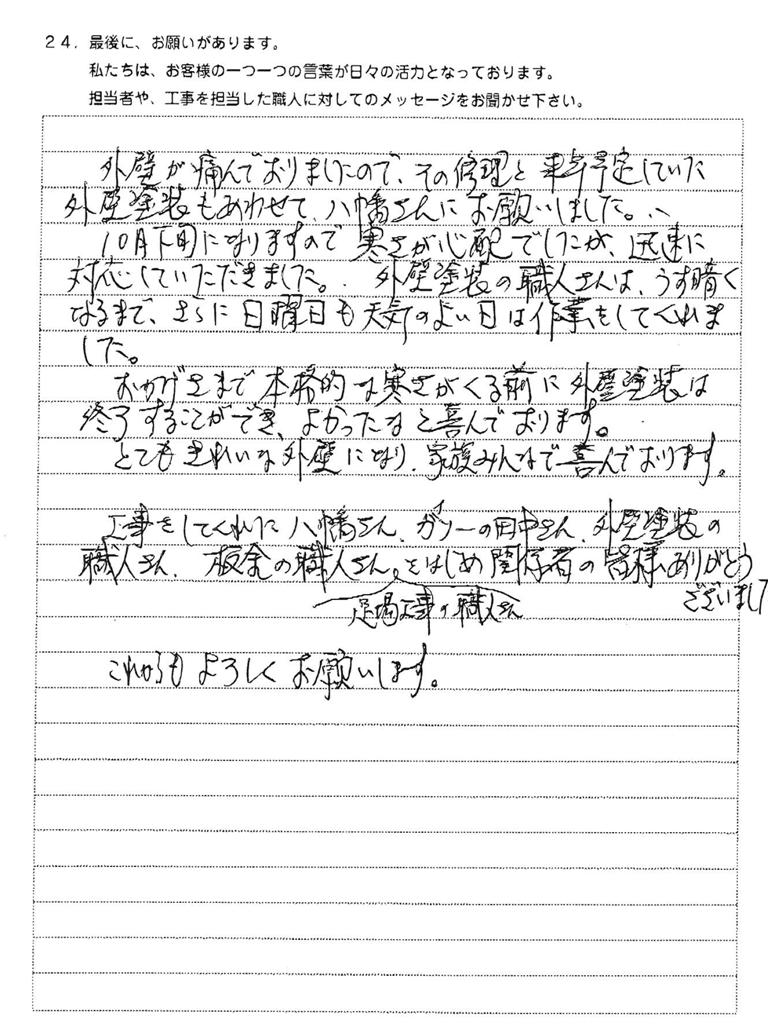 24. 最後に、お願いがあります。
私たちは、お客様の一つ一つの言葉が日々の活力となっております。
担当者や、工事を担当した職人に対してのメッセージをお聞かせ下さい。
外壁が痛んでおりましたので、その修理と 予定していた
外壁塗装もあわせて、八幡さんにお願いしました。
10月下旬になりますので 寒さが心配でしたが、迅速に
対応していただきました。 外壁塗装の職人さんは、うす暗く
なるまで、さらに日曜日も天気のよい日は作業をしてくれま
した。
おかげさまで本格的な寒さがくる前に外壁塗装は
終了することができ、よかったなと喜んでおります。
とてもきれいな外壁になり、家族みんなで喜んでおります。
工事をしてくれた八幡さん、 の田中さん、外壁塗装の
職人さん、板金の職人さん、をはじめ関係者の皆様ありがとう
ございまし
足場工事の職人さん
これからもよろしくお願いします。